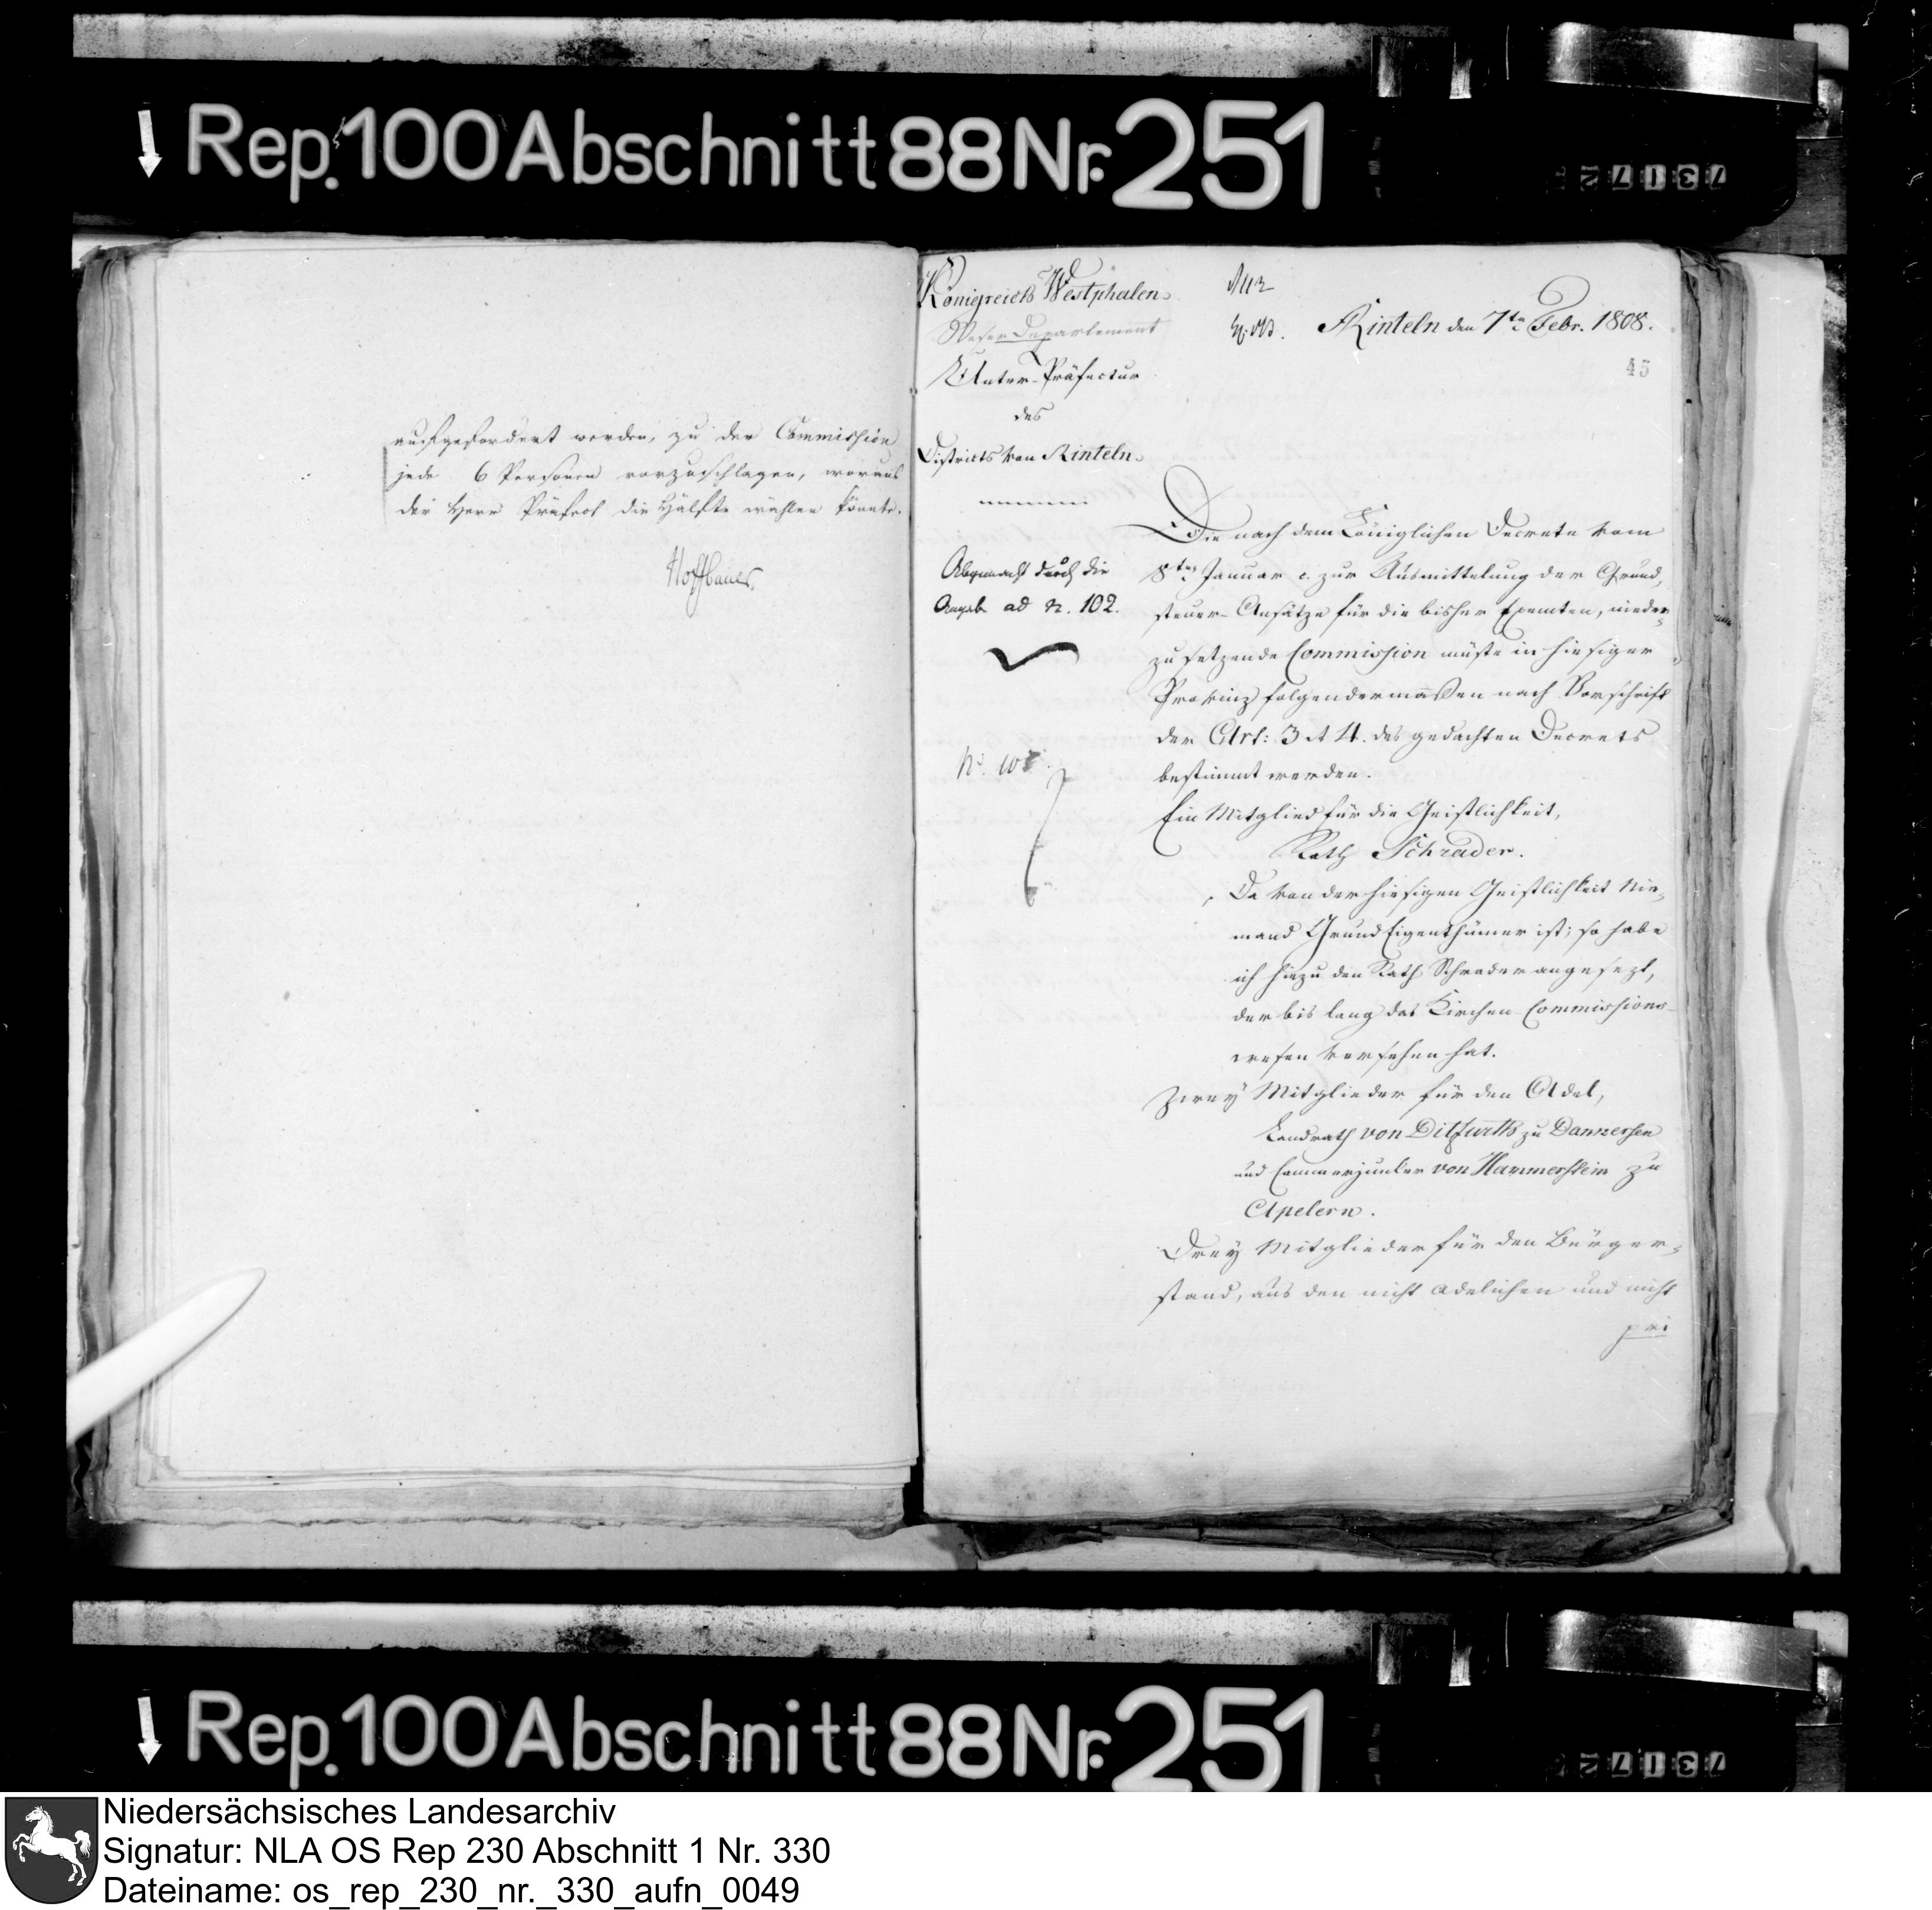 Rep. 100 Abschnitt 88 Nr. 251
73172
aufgefordert werden, zu der Commission
jede 6 Personen vorzuschlagen, woraus
der Herr Präfect die Hälfte wählen könnte.
Hoffbauer
Königreich Westphalen.
Weser Departement
Unter-Präfectur
des
Districts von Rinteln.
Rinteln den 7ten Febr. 1808.
45
Abgemacht durch die
Angabe ad N. 102.
Die nach dem Königlichen Decrete vom
8ten Januar c. zur Ausmittelung der Grund,
steuer-Ansätze für die bisher Exemten, nieder-
zu setzende Commission müste in hiesiger
Provinz folgendermaßen nach Vorschrift
der Art: 3 et 4. des gedachten Decrets
bestimmt werden.
Ein Mitglied für die Geistlichkeit,
Rath Schrader.
Da von der hiesigen Geistlichkeit Nie-
mand Grund Eigenthümer ist; so habe
ich hiezu den Rath Schrader angesezt,
der bis lang das Kirchen Commissions-
wesen versehen hat.
Zwey Mitglieder für den Adel,
Landrath von Ditfurth zu Dannersen
und Cammerjunker von Hammerstein zu
Apelern.
Drey Mitglieder für den Bürger-
stand, aus den nicht adelichen und nicht
pri
Rep. 100 Abschnitt 88 Nr. 251
73172
Niedersächsisches Landesarchiv
Signatur: NLA OS Rep 230 Abschnitt 1 Nr. 330
Dateiname: os_rep_230_nr._330_aufn_0049